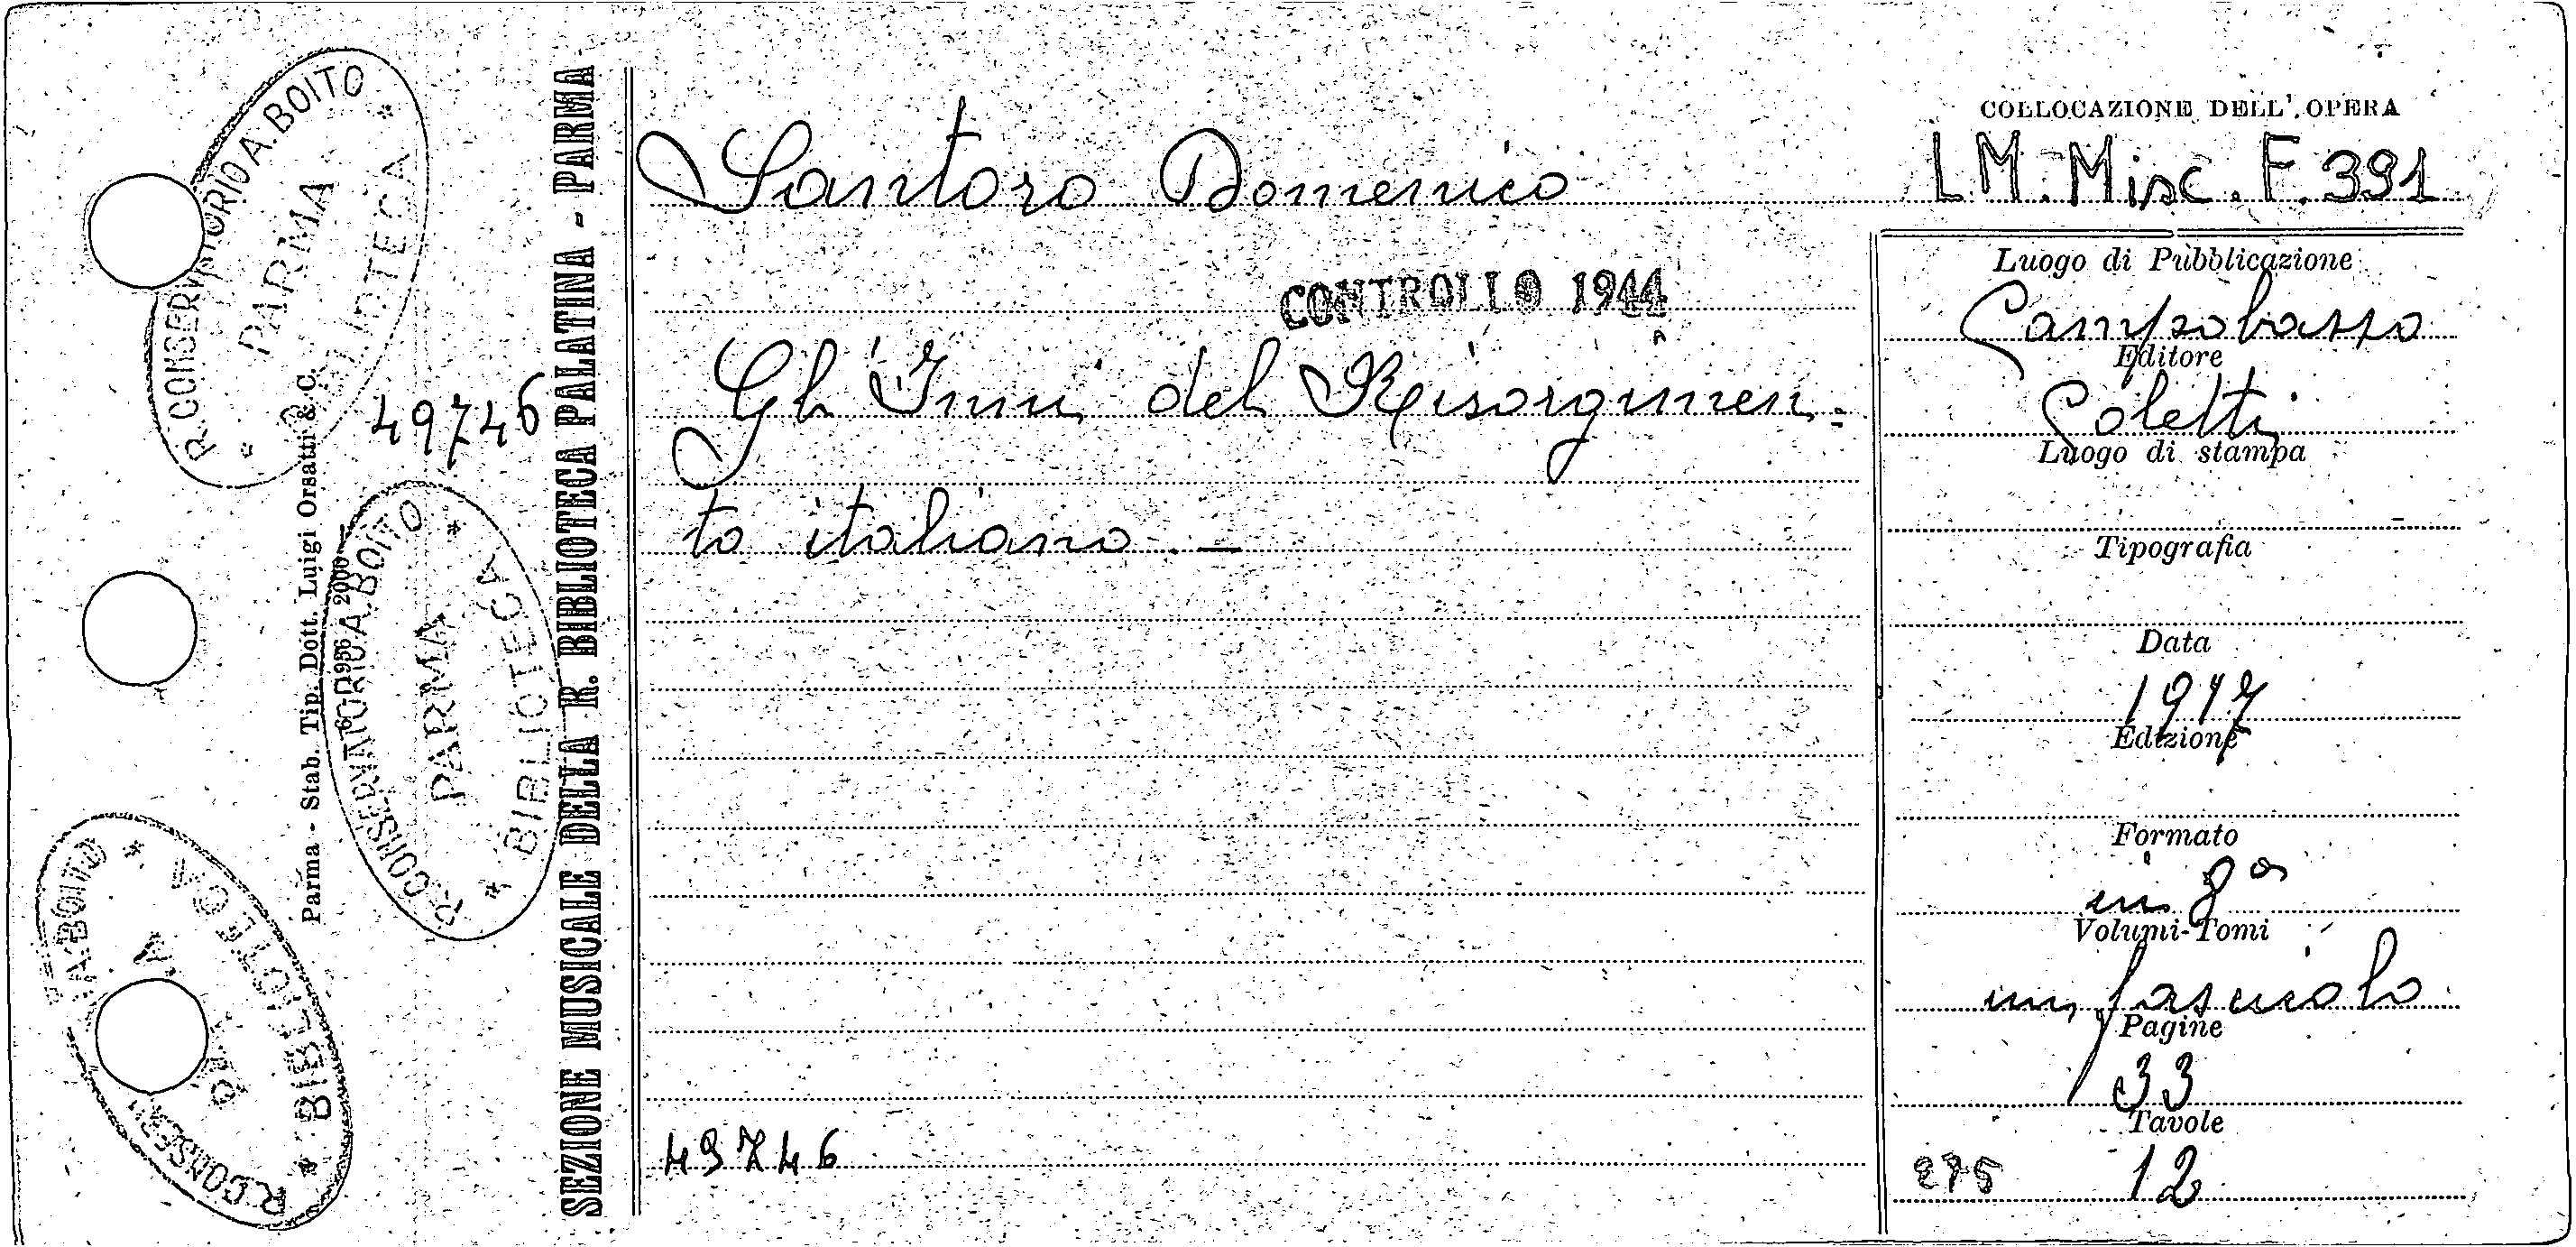 COLLOCAZIONE DELL' OPERA
Santoro Domenico
LM. Misc. F. 391
CONTROLLO 1944
Gli Inni del Risorgimen-
to italiano. -
49746
Luogo di Pubblicazione
Campobasso
Editore
Coletti
Luogo di stampa
Tipografia
Data
1917
Edizione
Formato
in 8°
Volumi-Tomi
un fascicolo
Pagine
33
Tavole
275 12
SEZIONE MUSICALE DELLA R. BIBLIOTECA PALATINA - PARMA
Parma - Stab. Tip. Dott. Luigi Orsatti & C.
49746
R. CONSERVATORIO A. BOITO
PARMA
* BIBLIOTECA *
R. CONSERVATORIO A. BOITO
PARMA
* BIBLIOTECA *
A. BOITO
* BIBLIOTECA *
R. CONSER